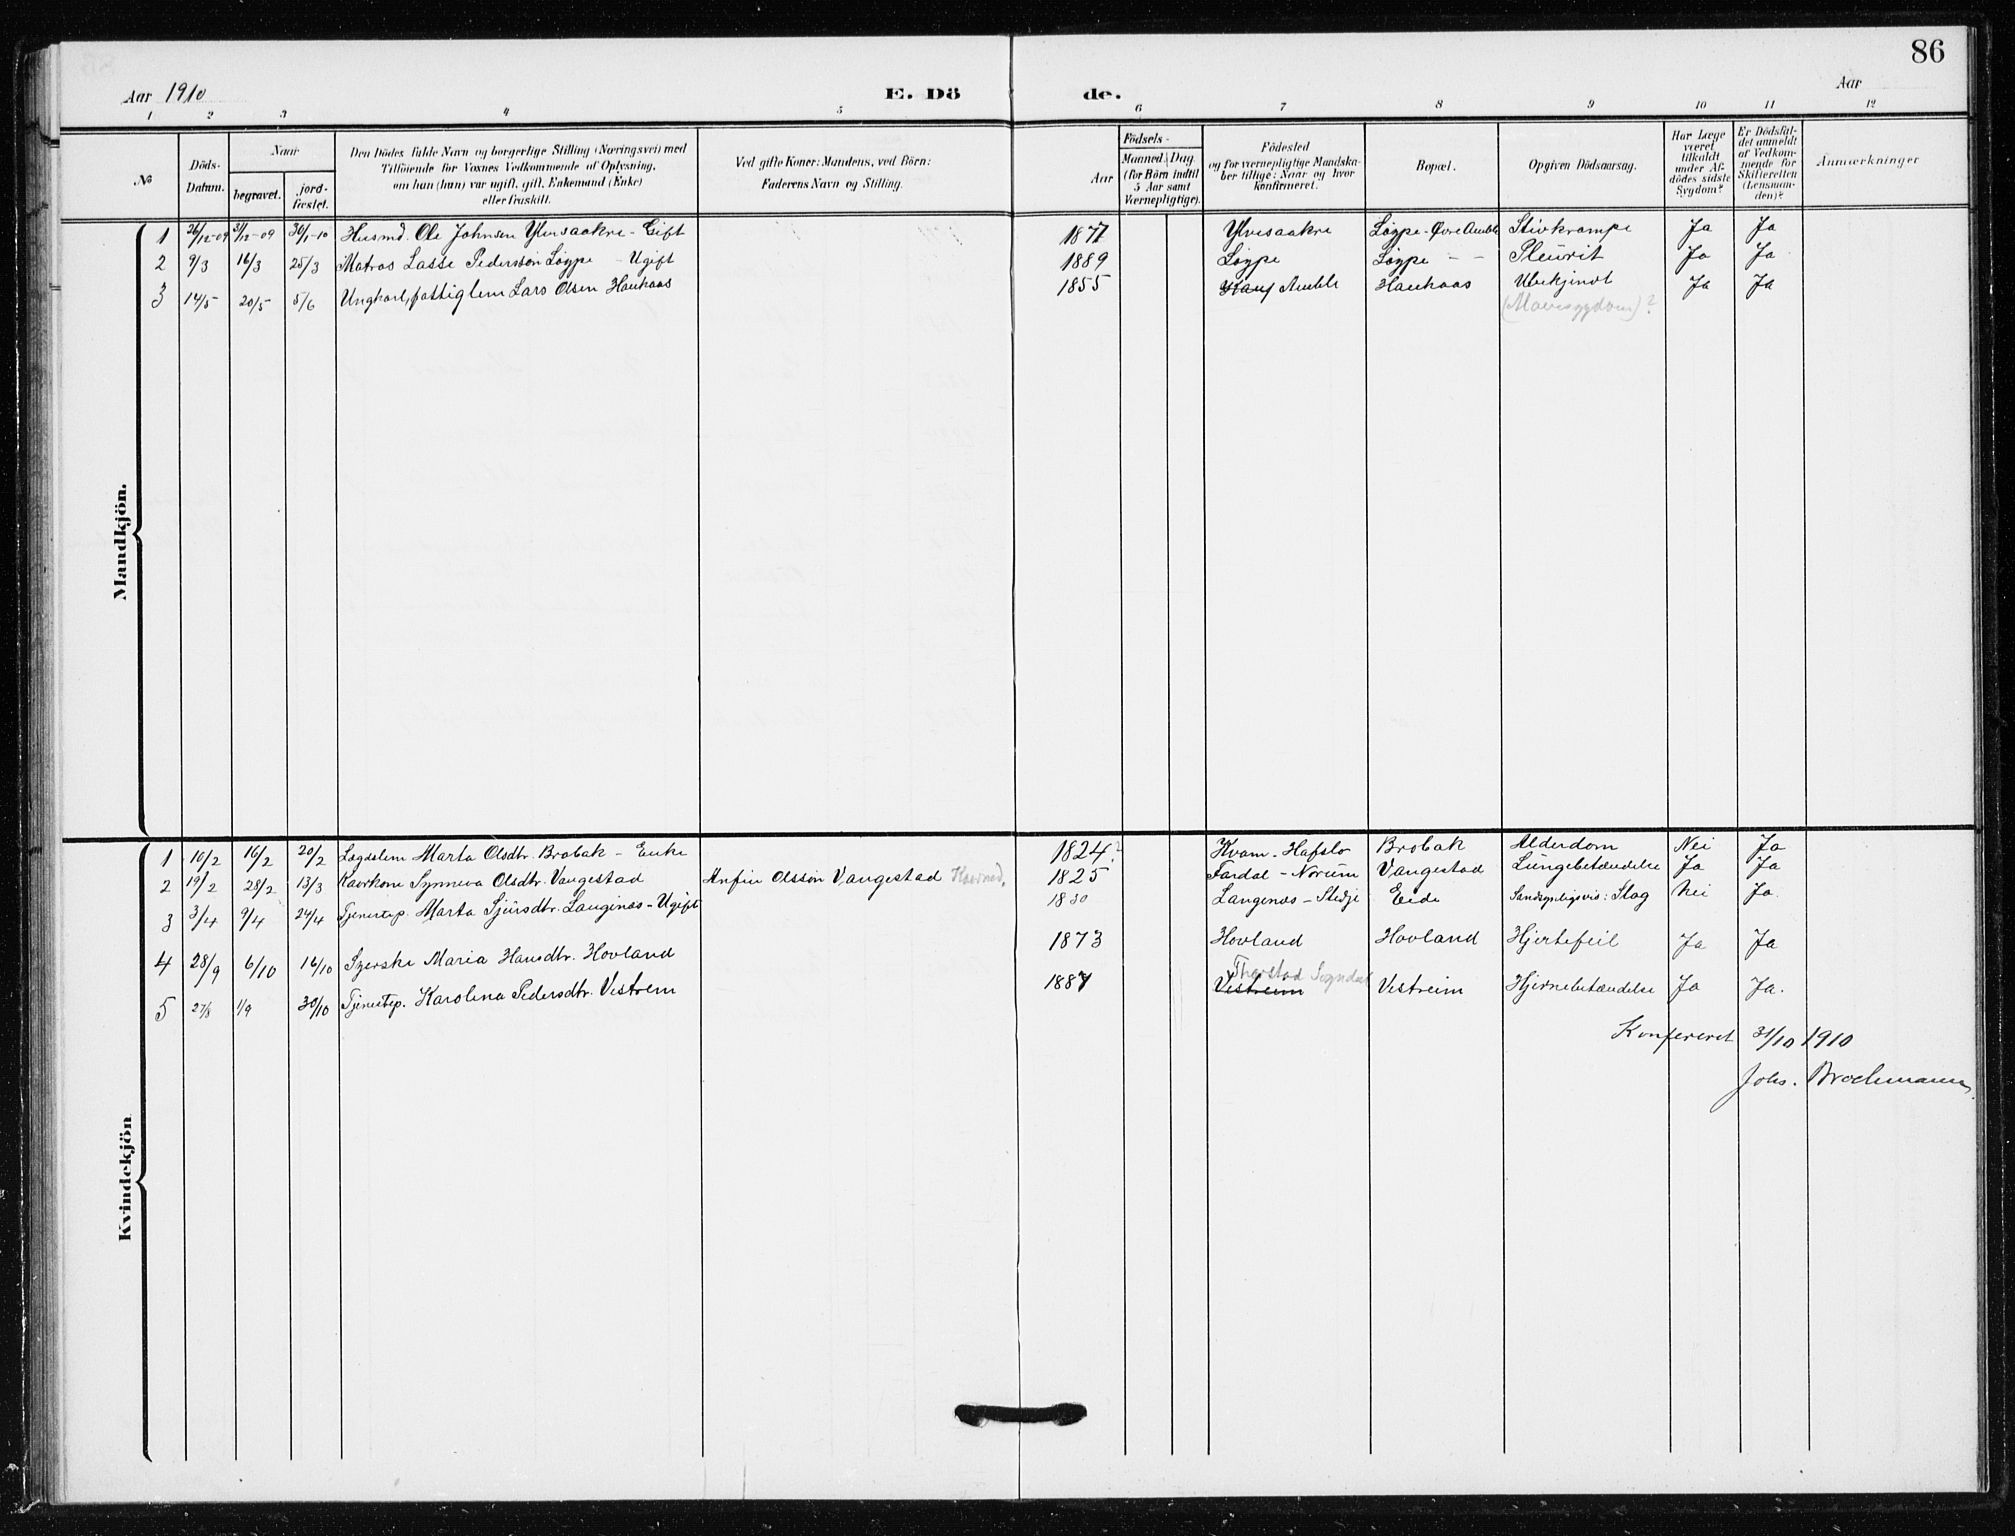 86
Aar 1910 E. Dö de. Aar
1 2 3 4 5 6 7 8 9 10 11 12
No
Döds-
Datum.
Naar
begravet.
jord-
fæstet.
Den Dödes fulde Navn og borgerlige Stilling (Næringsvei) med
Tilföiende for Voxnes Vedkommende af Oplysning,
om han (hun) var ugift, gift, Enkemand (Enke)
eller fraskilt.
Ved gifte Koner: Mandens, ved Börn:
Faderens Navn og Stilling.
Aar
Födsels-
Maaned. Dag.
(for Börn indtil
5 Aar samt
Værnepligtige).
Födested
og for værnepligtige Mandska-
ber tillige: Naar og hvor
konfirmeret.
Bopæl.
Opgiven Dödsaarsag.
Har Læge
været
tilkaldt
under Af-
dödes sidste
Sygdom?
Er Dödsfal-
det anmeldt
af Vedkom-
mende for
Skifteretten
(Lensman-
den)?
Anmærkninger
Mandkjön.
1 26/12-09 31/12-09 30/1-10 Husmd. Ole Johnsen Ylvisaakre - Gift 1877 Ylvisaakre Løype - Øvre Amble Stivkrampe Ja Ja
2 9/3 16/3 25/3 Matros Lasse Pedersson Løype - Ugift 1889 Løype Løype - - Pleurit Ja Ja
3 14/5 20/5 5/6 Ungkarl, fattiglem Lars Olsen Haukaas 1855 Amble Haukaas Ubekjendt Ja Ja
(Mavesygdom)?
Kvindekjön
1 10/2 16/2 20/2 Lægdslem Marta Olsdtr. Brobak - Enke 1824? Kvam - Hafslo Brobak Alderdom Nei Ja
2 19/2 28/2 13/3 Kaarkone Synneva Olsdtr. Vangestad Anfin Olsson Vangestad Kaarmd. 1825 Fardal - Norum Vangestad Lungebetændelse Ja Ja
3 3/4 9/4 24/4 Tjenestep. Marta Sjursdtr. Langenæs - Ugift 1830 Langenæs - Stedje Eide Sandsynligvis: Slag Nei Ja
4 28/9 6/10 16/10 Syerske Maria Hansdtr. Hovland 1873 Hovland Hovland Hjertefeil Ja Ja
Thorstad Sogndal
5 27/8 1/9 30/10 Tjenestep. Karolina Pedersdtr. Vestrem 1887 Vestreim Vestreim Hjernebetændelse Ja Ja.
Konfereret 31/10 1910
Johs. Brochmann